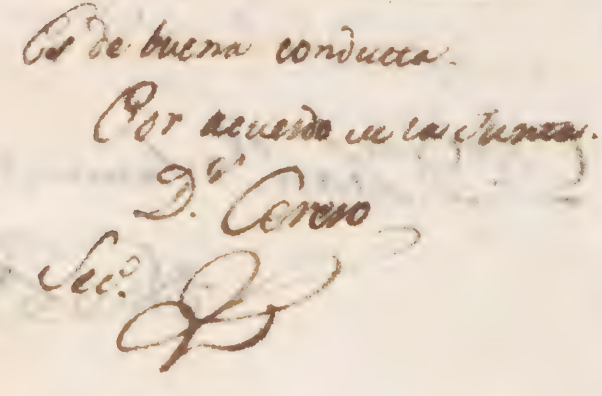 Es de buena conducta.
Por acuerdo de la Junta.
D.ⁿ Cerero
Sec.